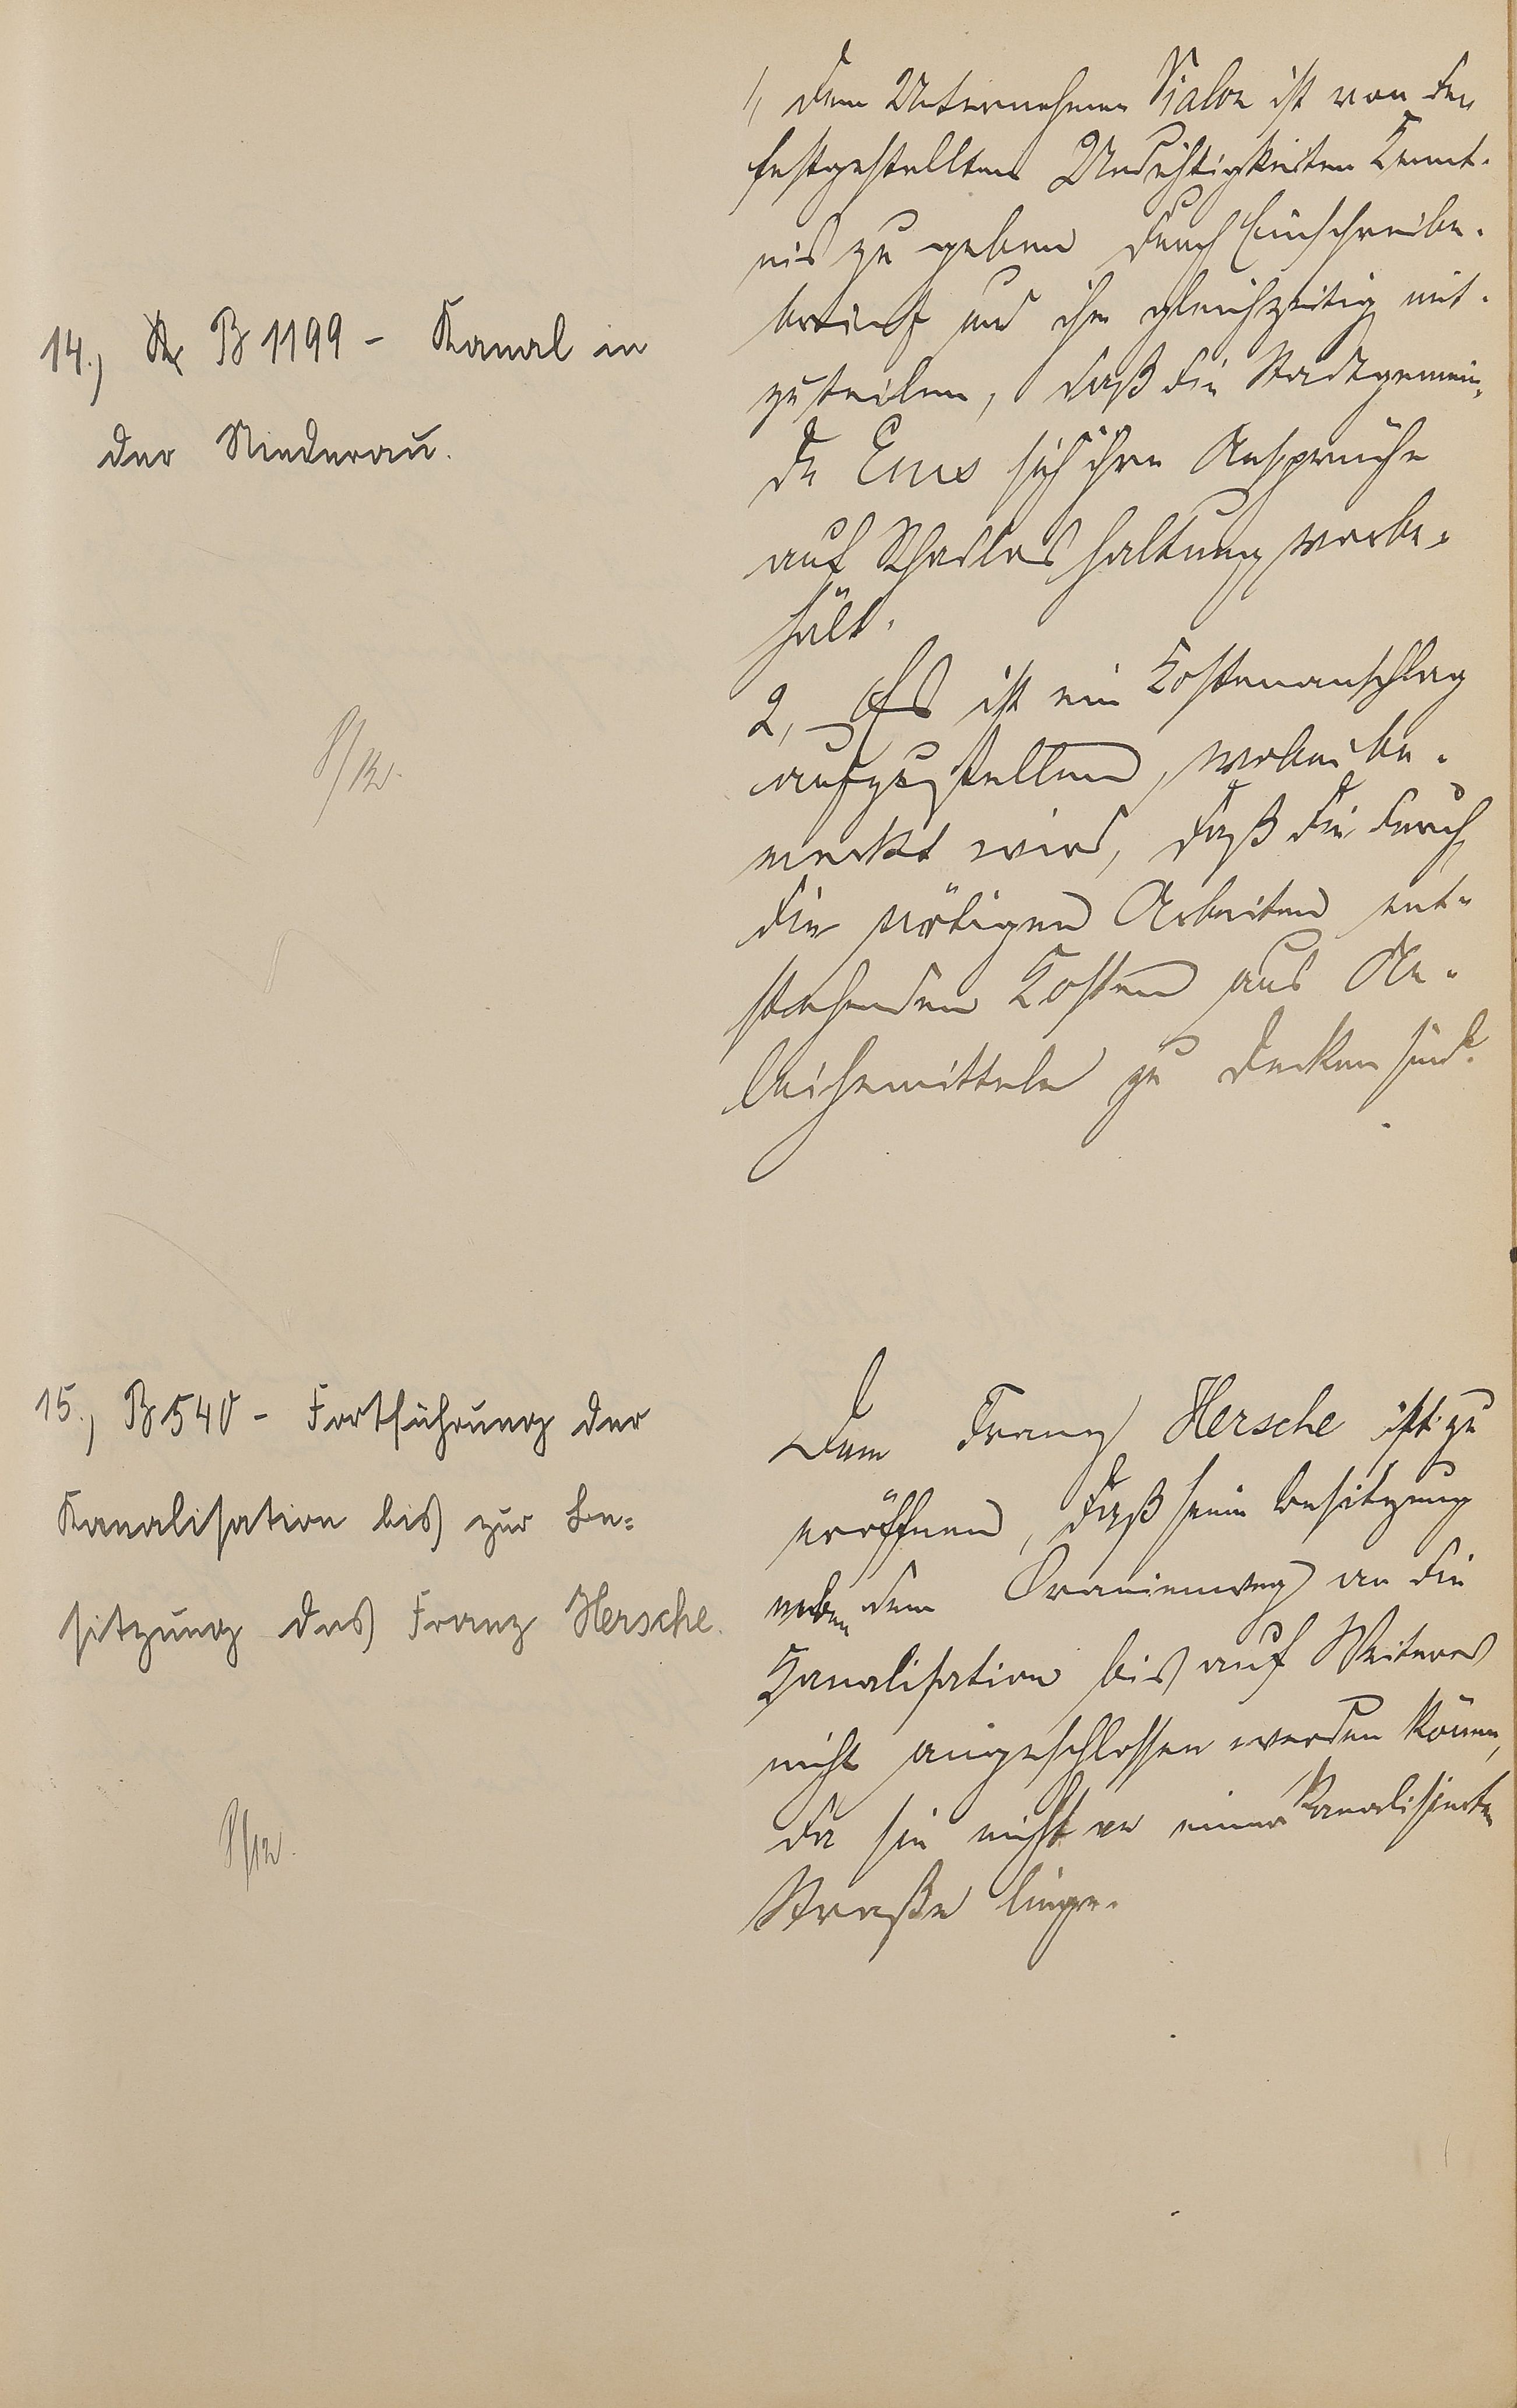 14., B 1199 - Kanal in
der Niederau.
8/12.
1, dem Unternehmer Vialon ist von den
festgestellten Undichtigkeiten Kennt-
nis zu geben durch Einschreibe-
brief und ihm gleichzeitig mit-
zuteilen, daß die Stadtgemein-
de Ems sich ihre Ansprüche
auf Schadloshaltung vorbe-
hält.
2, Es ist ein Kostenanschlag
aufzustellen, wobei be-
merkt wird, daß die durch
die nötigen Arbeiten ent-
stehenden Kosten aus An-
leihemitteln zu decken sind.
15., B 540 - Fortführung der
Kanalisation bis zur Be-
sitzung des Franz Hersche.
8/12.
Dem Franz Hersche ist zu
eröffnen, daß seine Besitzung
neben dem Oranienweg an die
Kanalisation bis auf Weiteres
nicht angeschlossen werden könne,
da sie nicht an einer kanalisierten
Straße liege.